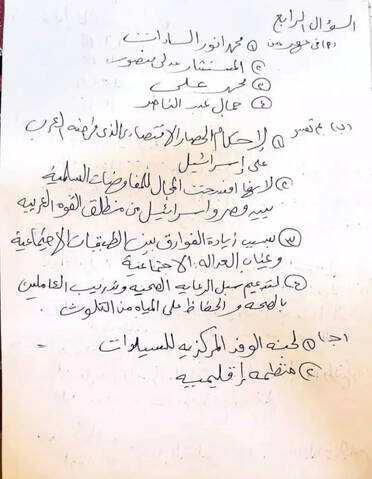 السؤال الرابع
(أ) فى عهد من ① محمد انور السادات
② المستشار عدلى منصور
③ محمد على
④ جمال عبد الناصر
(ب) بم تفسر ① لإحكام الحصار الاقتصادى الذى فرضه العرب
على إسرائيل
② لانها افسحت المجال للمفاوضات السلمية
بين مصر واسرائيل من منطلق القوه العربيه
③ بسبب زيادة الفوارق بين الطبقات الاجتماعية
وغياب العداله الاجتماعية
④ لتدعيم سبل الرعايه الصحيه وتدريب العاملين
بالصحه والحفاظ على المياه من التلوث
(ج) ① لجنه الوفد المركزيه للسيدات
② منظمه إقليميه